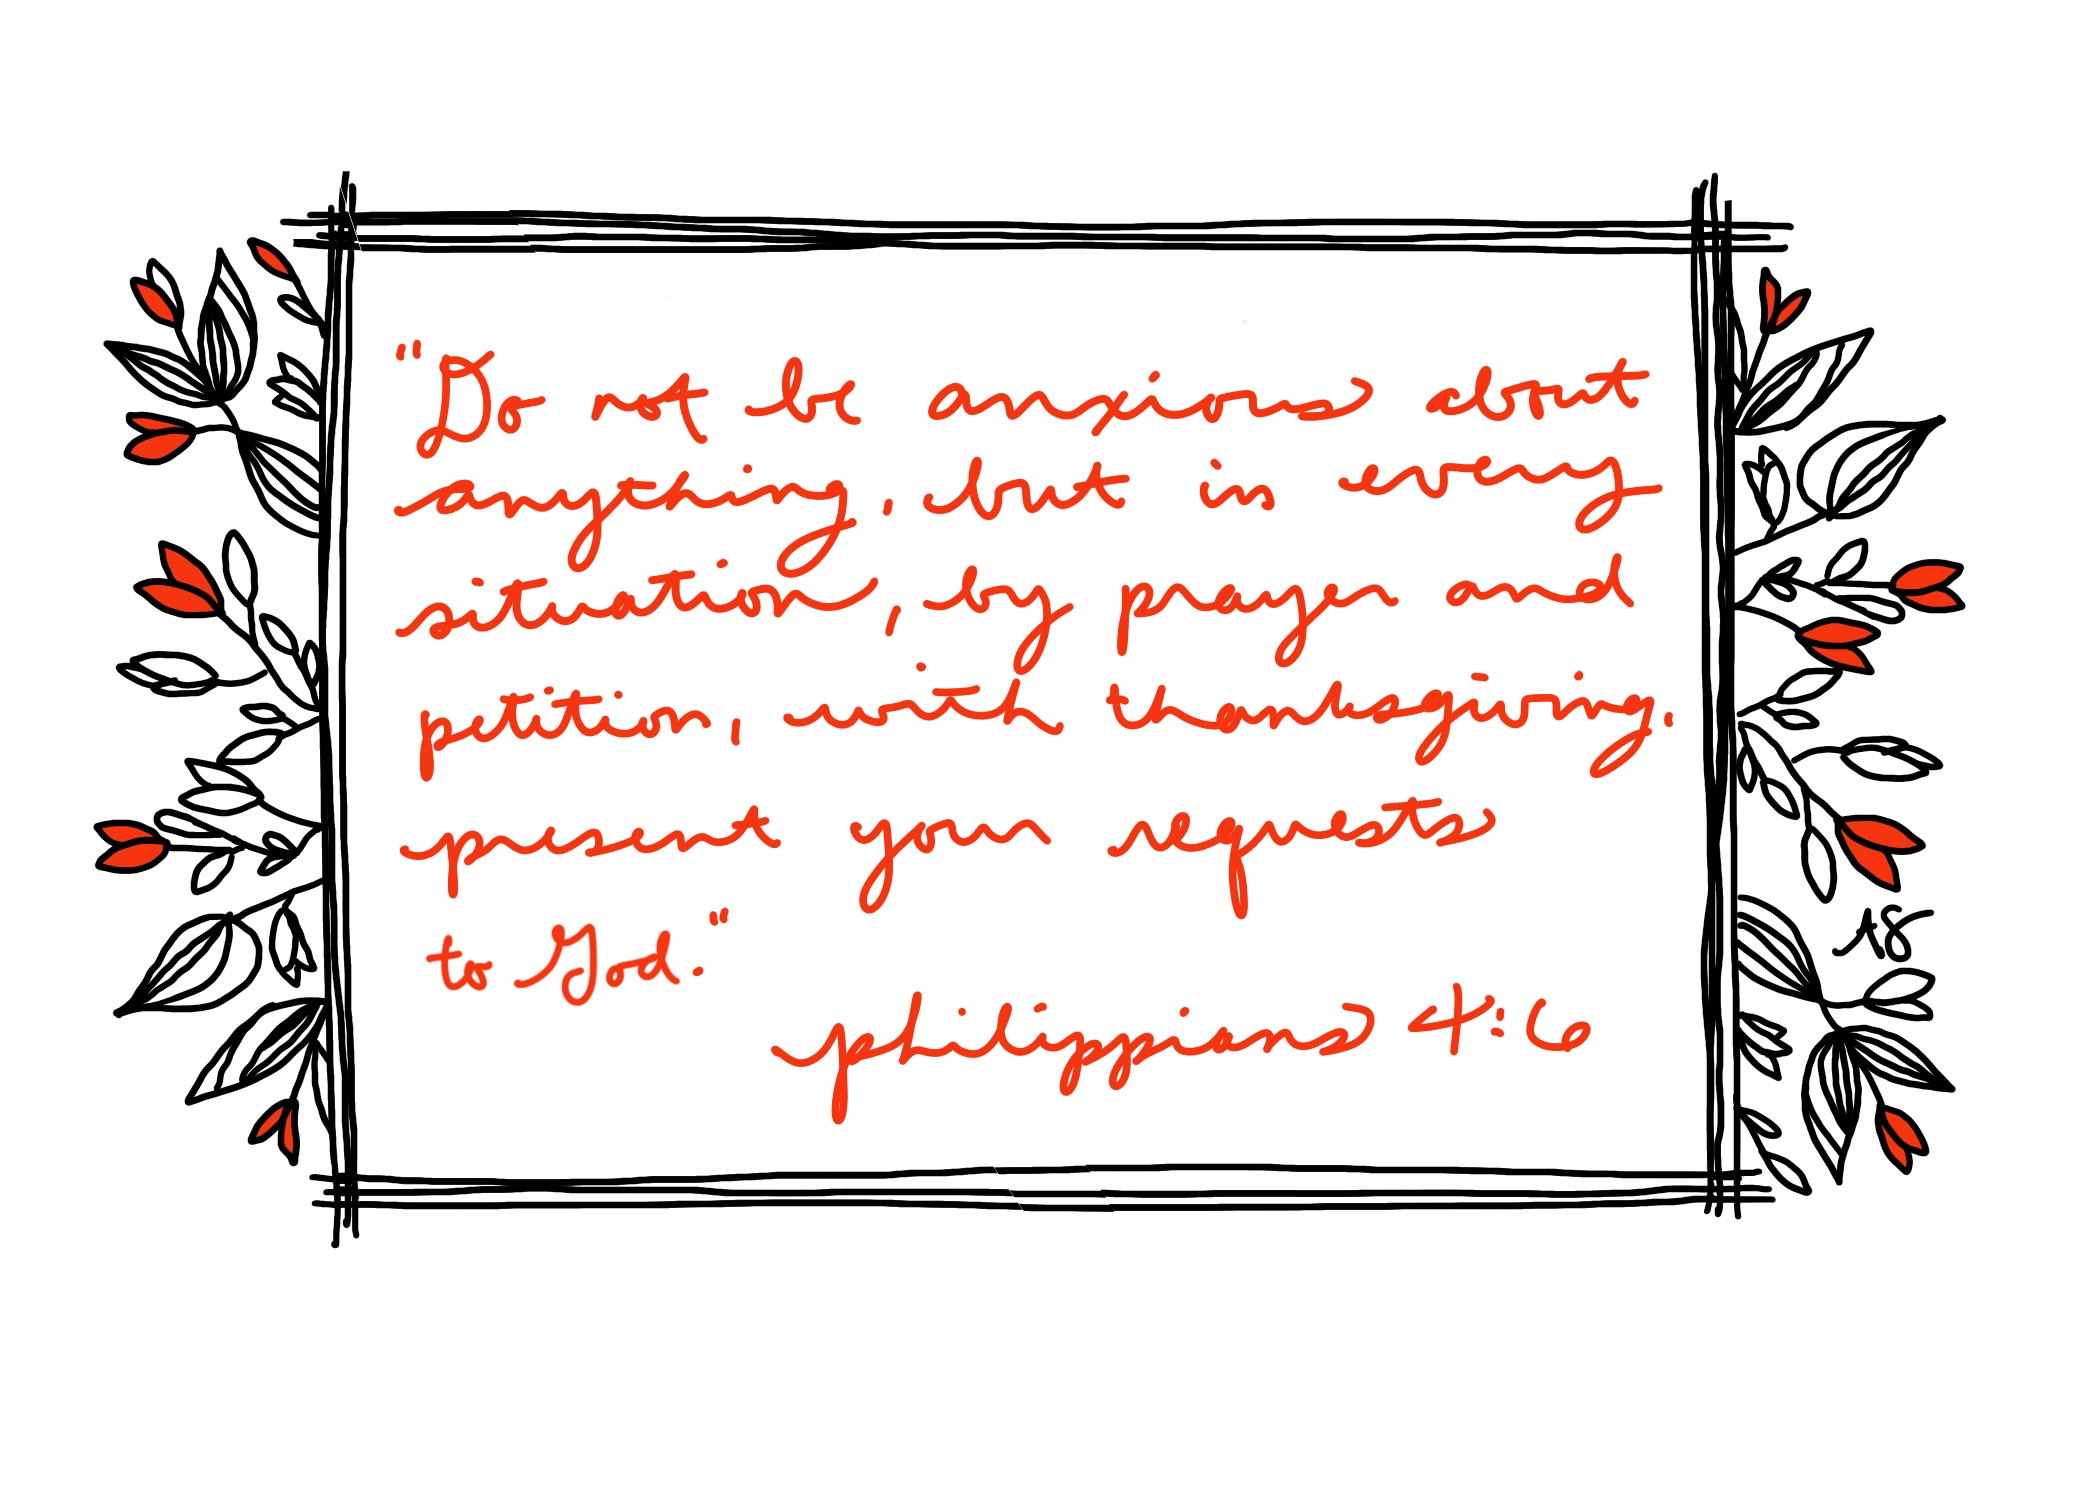 "Do not be anxious about
anything, but in every
situation, by prayer and
petition, with thanksgiving,
present your requests
to God."
philippians 4:6